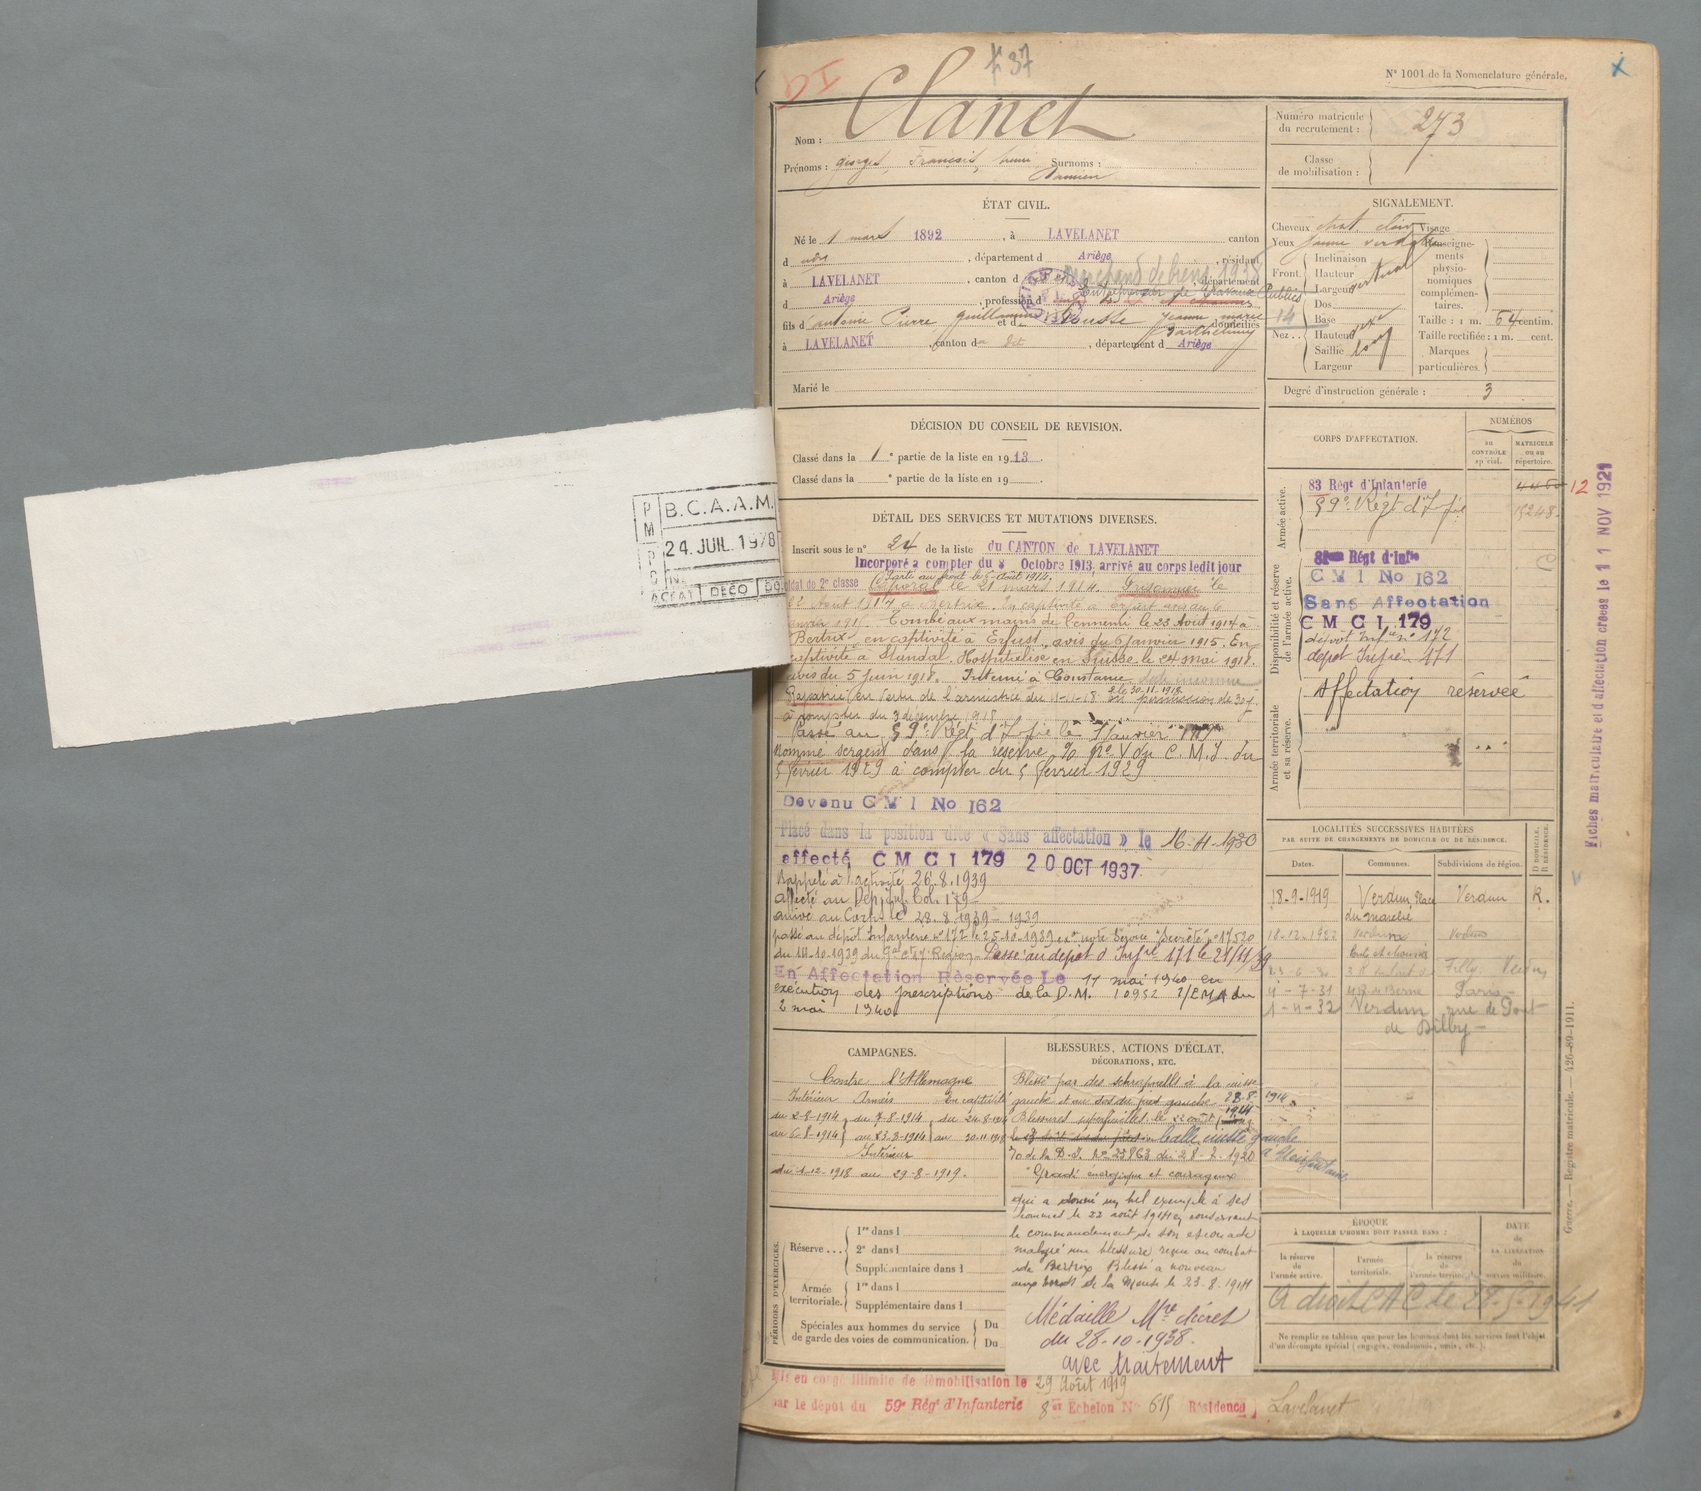 N° 1001 de la Nomenclature générale.
Nom : Clanet
Prénoms : georges, François, henri Surnoms :
Damien
Numéro matricule du recrutement : 273
Classe de mobilisation :
ÉTAT CIVIL.
Né le 1 mars 1892, à LAVELANET canton
d udit, département d Ariège, résidant
à LAVELANET, canton d , département
marchand de biens 1938
d Ariège, profession d Entrepreneur de Travaux Publics
fils d'antonin Pierre guillaume et de Rousse Jeanne marie domiciliés
Barthelemy
à LAVELANET, canton du dit, département d Ariège
Marié le
SIGNALEMENT.
Cheveux chat clair Visage
Yeux jaune verdâtre Renseignements physionomiques complémentaires.
Front. Inclinaison
Hauteur
Largeur
Nez.. Dos
Base
Hauteur
Saillie long
Largeur
Taille : 1 m. 64 centim.
Taille rectifiée : 1 m. cent.
Marques particulières.
Degré d'instruction générale : 3
DÉCISION DU CONSEIL DE REVISION.
Classé dans la 1e partie de la liste en 1913.
Classé dans la e partie de la liste en 19
DÉTAIL DES SERVICES ET MUTATIONS DIVERSES.
Inscrit sous le n° 24 de la liste du CANTON de LAVELANET
Incorporé a compter du 8 Octobre 1913, arrivé au corps ledit jour
Parti au front le 6 août 1914.
soldat de 2e classe Caporal le 21 mars 1914. Prisonnier le
22 Août 1914 à Bertrix. En captivité à Erfurt avis du 6
janvier 1915. Tombé aux mains de l'ennemi le 23 Août 1914 à
Bertrix en captivité à Erfurt, avis du 6 janvier 1915. En
captivité à Stendal. Hospitalisé en Suisse le 24 mai 1918.
avis du 5 juin 1918. Interné à Constance, date inconnue
Rapatrié en vertu de l'armistice du 11-11-18 le 30.11.1918. En permission de 30 j.
à compter du 3 décembre 1918
Passé au 59e Régt d'Infie le 7 Janvier
Nommé sergent dans la réserve, %o n° V du C.M.I. du
5 février 1929 à compter du 5 février 1929
Devenu C M I No 162
Placé dans la position dite « Sans affectation » le 16-4-1930
affecté C M C I 179 20 OCT 1937
Rappelé à l'activité 26.8.1939
affecté au Dép. Inf. Col. 179
arrivé au Corps le 28.8.1939 - 1939
passé au dépôt Infanterie n° 172 le 25-10-1939 exon note Région Secrète n° 17520
du 14.10.1939 du Gal Ct 17e Région. Passé au dépôt d'Infie 171 le 21/11/39
En Affectation Réservée Le 11 mai 1940 en
exécution des prescriptions de la D.M. 10952 1/EMA du
2 mai 1940
CORPS D'AFFECTATION.
NUMÉROS
AU CONTRÔLE spécial.
MATRICULE OU AU répertoire.
Armée active.
83 Régt d'Infanterie 12
59e Régt d'Infie 15248
Disponibilité et réserve de l'armée active.
Régt d'Infie
C M I No 162
Sans Affectation
C M C I 179
dépôt Infie n° 172
dépôt Infie 171
Armée territoriale et sa réserve.
Affectation réservée
Fiches matriculaire et d'affectation créées le 11 NOV 1921
LOCALITÉS SUCCESSIVES HABITÉES
PAR SUITE DE CHANGEMENTS DE DOMICILE OU DE RÉSIDENCE.
Dates. Communes. Subdivisions de région. D DOMICILE. R RÉSIDENCE.
18-9-1919 Verdun Place du marché Verdun R.
18-12-1922 Verdun Verdun
4-7-31 42 R. de Berne Paris
1-4-32 Verdun rue de Pont
de Bilby
CAMPAGNES.
Contre l'Allemagne
Intérieur Armées En captivité
du 2-8-1914 du 7-8-1914 du 24-8-1914
au 6-8-1914 au 23-8-1914 au 30-11-1918
Intérieur
du 1-12-1918 au 29-8-1919.
BLESSURES, ACTIONS D'ÉCLAT,
DÉCORATIONS, ETC.
Blessé par des schrapnells à la cuisse
gauche et au dos du pied gauche 23-8-1914
Blessures superficielles le 22 août 1914
balle cuisse gauche
%o de la D.I. n° 23863 du 28-2-1920
"Gradé énergique et courageux
qui a donné un bel exemple à ses
hommes le 22 août 1914 en conservant
le commandement de son escouade
malgré une blessure reçue au combat
de Bertrix Blessé à nouveau
aux bords de la Meuse le 23.8.1914
Médaille Mre décret
du 28-10-1938.
avec traitement
PÉRIODES D'EXERCICES.
Réserve... 1re dans l
2e dans l
Supplémentaire dans l
Armée territoriale. 1re dans l
Supplémentaire dans l
Spéciales aux hommes du service de garde des voies de communication. Du
Du
ÉPOQUE
À LAQUELLE L'HOMME DOIT PASSER DANS :
la réserve de l'armée active.
l'armée territoriale.
la réserve de l'armée territoriale.
DATE de LA LIBÉRATION du service militaire.
a droit CAC de 28-5-1941
Ne remplir ce tableau que pour les hommes dont les services font l'objet d'un décompte spécial (engagés, condamnés, omis, etc.).
Mis en congé illimité de démobilisation le 29 Août 1919
par le dépôt du 59e Régt d'Infanterie 8e Echelon N° 615 Résidence Lavelanet
Guerre. — Registre matricule. — 426-89-1911.
B.C.A.A.M.
24. JUIL. 1978
DÉCO